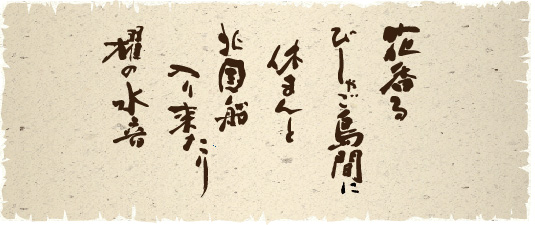 花香る
びしゃご島間に
休まんと
北国船
入り来たり
櫂の水音